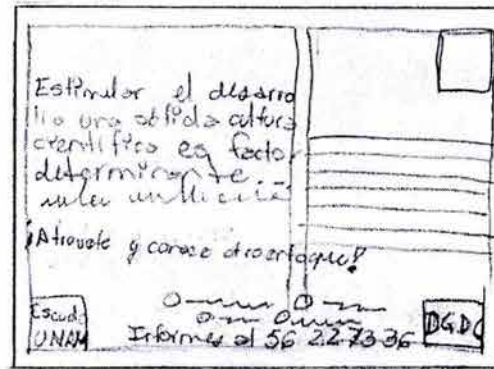 Estimular el desarro
llo una sólida cultura
científica es factor
determinante...
¡Atrevete y conoce otro enfoque!
Escudo
UNAM
Informes al 56 22 73 36
DGDC